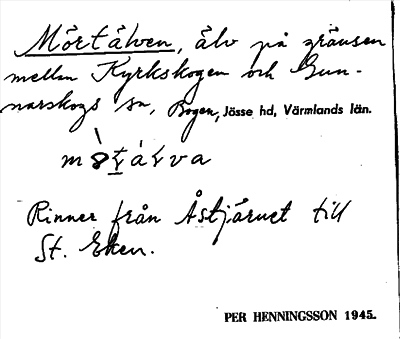 Mörtälven, älv på gränsen
mellan Kyrkskogen och Gun-
narskogs sn, Bogen, Jösse hd, Värmlands län.
Rinner från Åstjärnet till
St. Eken.
PER HENNINGSSON 1945.